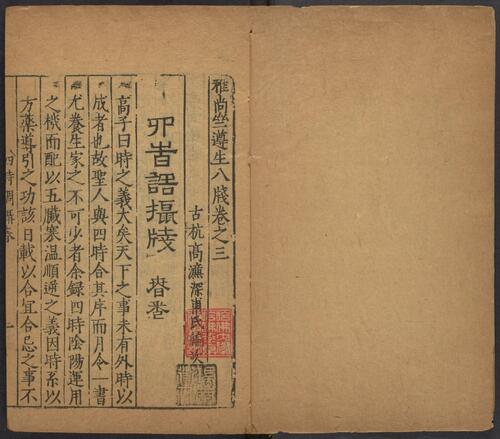 雅尚齋遵生八牋卷之三
古杭高濂深甫氏編次
四時調攝牋 春卷
高子曰時之義大矣天下之事未有外時以
成者也故聖人與四時合其序而月令一書
尤養生家之不可少者余録四時陰陽運用
之機而配以五臟寒温順逆之義因時系以
方藥導引之功該日載以合宜合忌之事不
四時調攝春
一